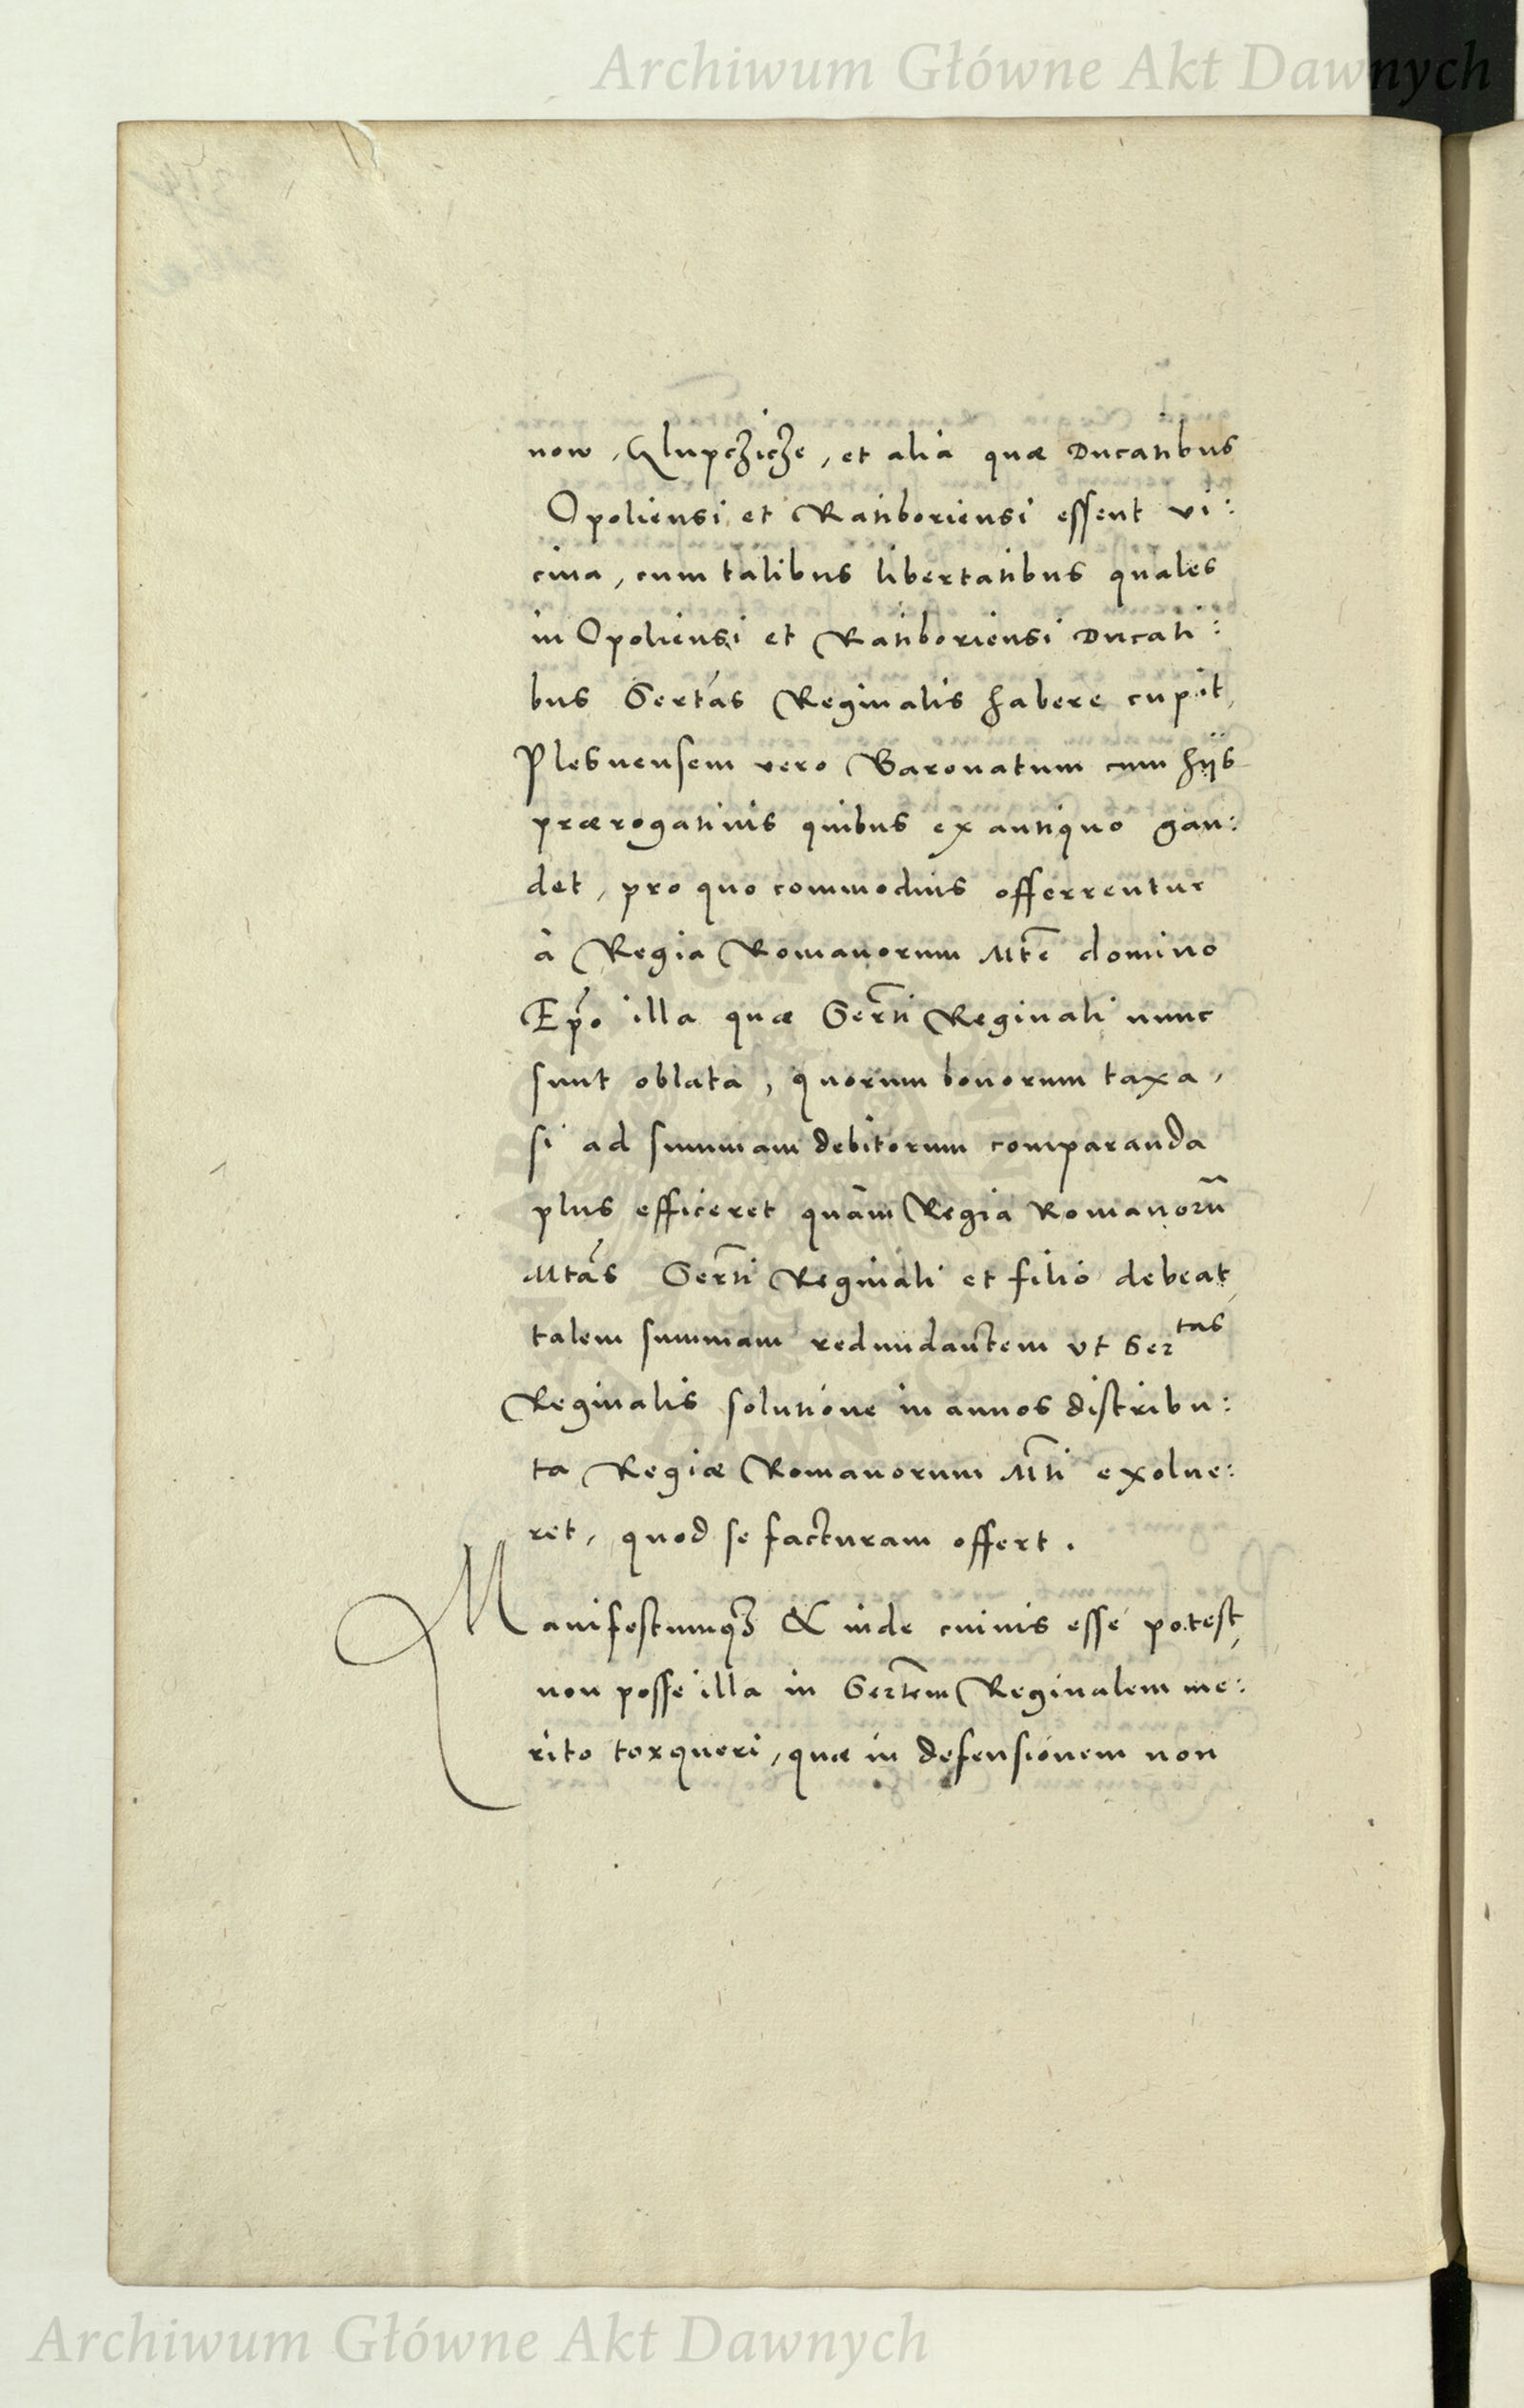 Archiwum Główne Akt Dawnych
now, Glupcziche, et alia quæ Ducatibus
Opoliensi et Ratiboriensi essent vi:
cina, cum talibus libertatibus quales
in Opoliensi et Ratiboriensi Ducati:
bus Sertas Reginalis habere cupit,
Plesnensem vero Baronatum cum hijs
prærogatiuis quibus ex antiquo gau:
det, pro quo commodius offerrentur
à Regia Romanorum Mte domino
Epo illa quæ Serti Reginali nunc
sunt oblata, quorum bonorum taxa,
si ad summam debitorum comparanda
plus efficeret quàm Regia Romanorũ
Mtas Serti Reginali et filio debeat,
talem summam redundantem vt Sertas
Reginalis solutione in annos distribu:
ta Regiæ Romanorum Mti exolue:
ret, quod se facturam offert.
Manifestumqꝫ & inde cuiuis esse potest,
non posse illa in Sertem Reginalem me:
rito torqueri, quæ in defensionem non
Archiwum Główne Akt Dawnych